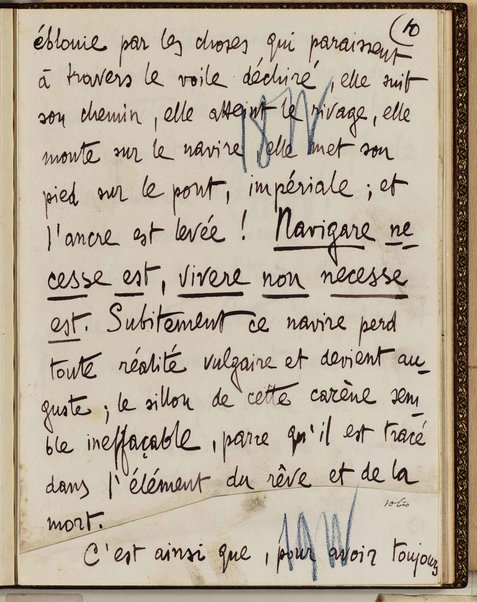 10
éblouie par les choses qui paraissent
à travers le voile déchiré, elle suit
son chemin, elle atteint le rivage, elle
monte sur le navire, elle met son
pied sur le pont, impériale ; et
l'ancre est levée ! Navigare ne-
cesse est, vivere non necesse
est. Subitement ce navire perd
toute réalité vulgaire et devient au-
guste ; le sillon de cette carène sem-
ble ineffaçable, parce qu'il est tracé
dans l'élément du rêve et de la
mort.
C'est ainsi que, pour avoir toujours